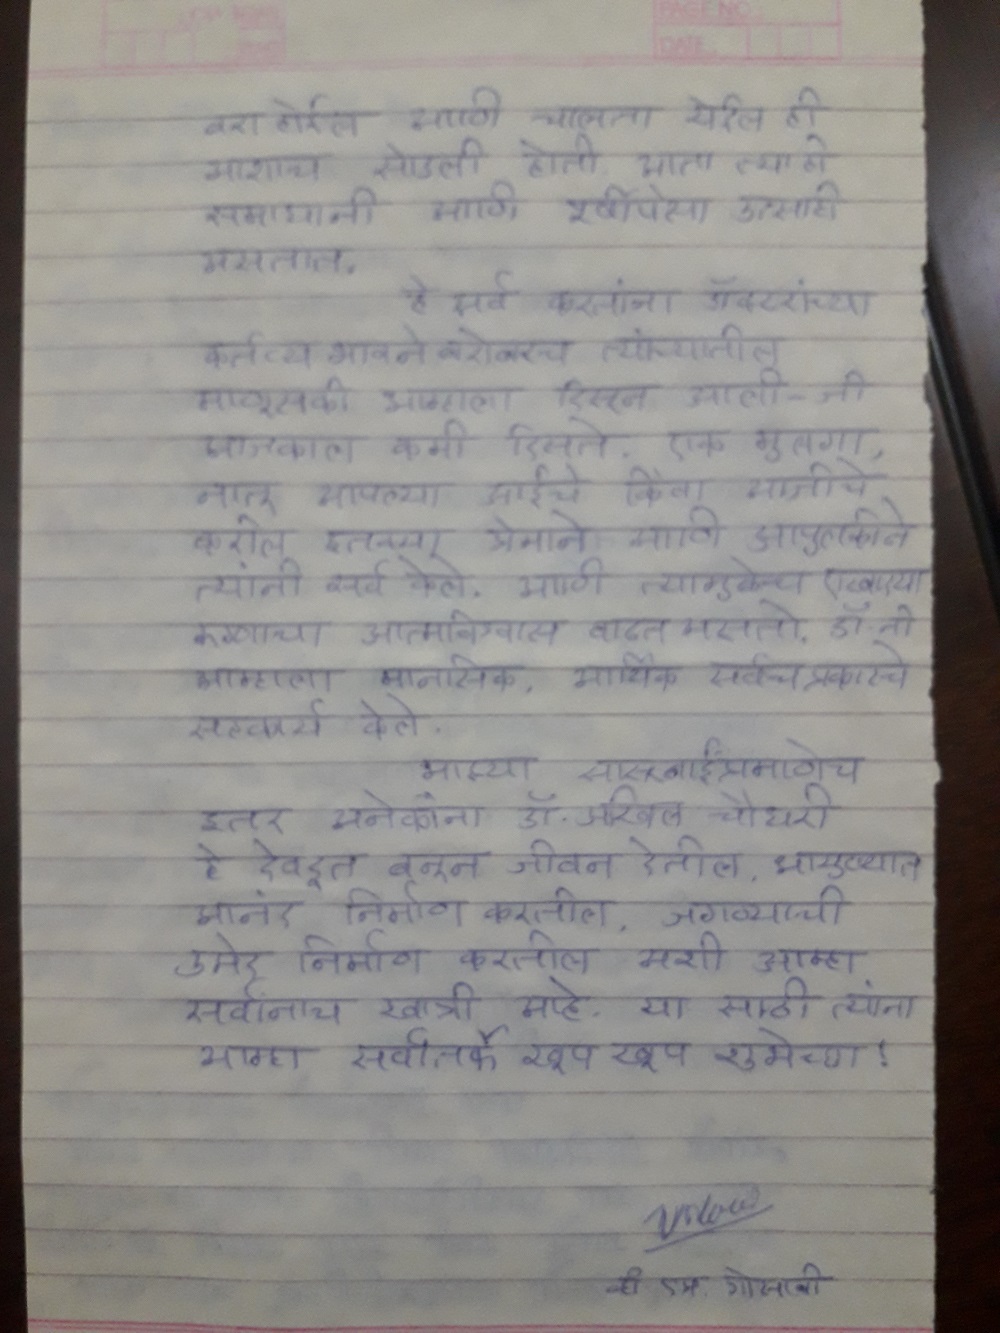 PAGE NO.
DATE.
बरा होईल आणि चालता येईल ही
आशाच सोडली होती. आता त्या ही
समाधानी आणि पूर्वीपेक्षा उत्साही
असतात.
हे सर्व करतांना डॉक्टरांच्या
कर्तव्य भावने बरोबरच त्यांच्यातील
माणूसकी आम्हाला दिसून आली - जी
आजकाल कमी दिसते. एक मुलगा,
नातू आपल्या आईचे किंवा आजीचे
करील इतक्या प्रेमाने आणि आपुलकीने
त्यांनी सर्व केले. आणि त्यामुळेच एखाद्या
रुग्णाचा आत्मविश्वास वाढत असतो. डॉ. नी
आम्हाला मानसिक, आर्थिक सर्वच प्रकारचे
सहकार्य केले.
माझ्या सासूबाईंप्रमाणेच
इतर अनेकांना डॉ. अखिल चौधरी
हे देवदूत बनून जीवन देतील, आयुष्यात
आनंद निर्माण करतील, जगण्याची
उमेद निर्माण करतील अशी आम्हा
सर्वांनाच खात्री आहे. या साठी त्यांना
आम्हा सर्वांतर्फे खूप खूप शुभेच्छा!
व्ही एम. गोसावी